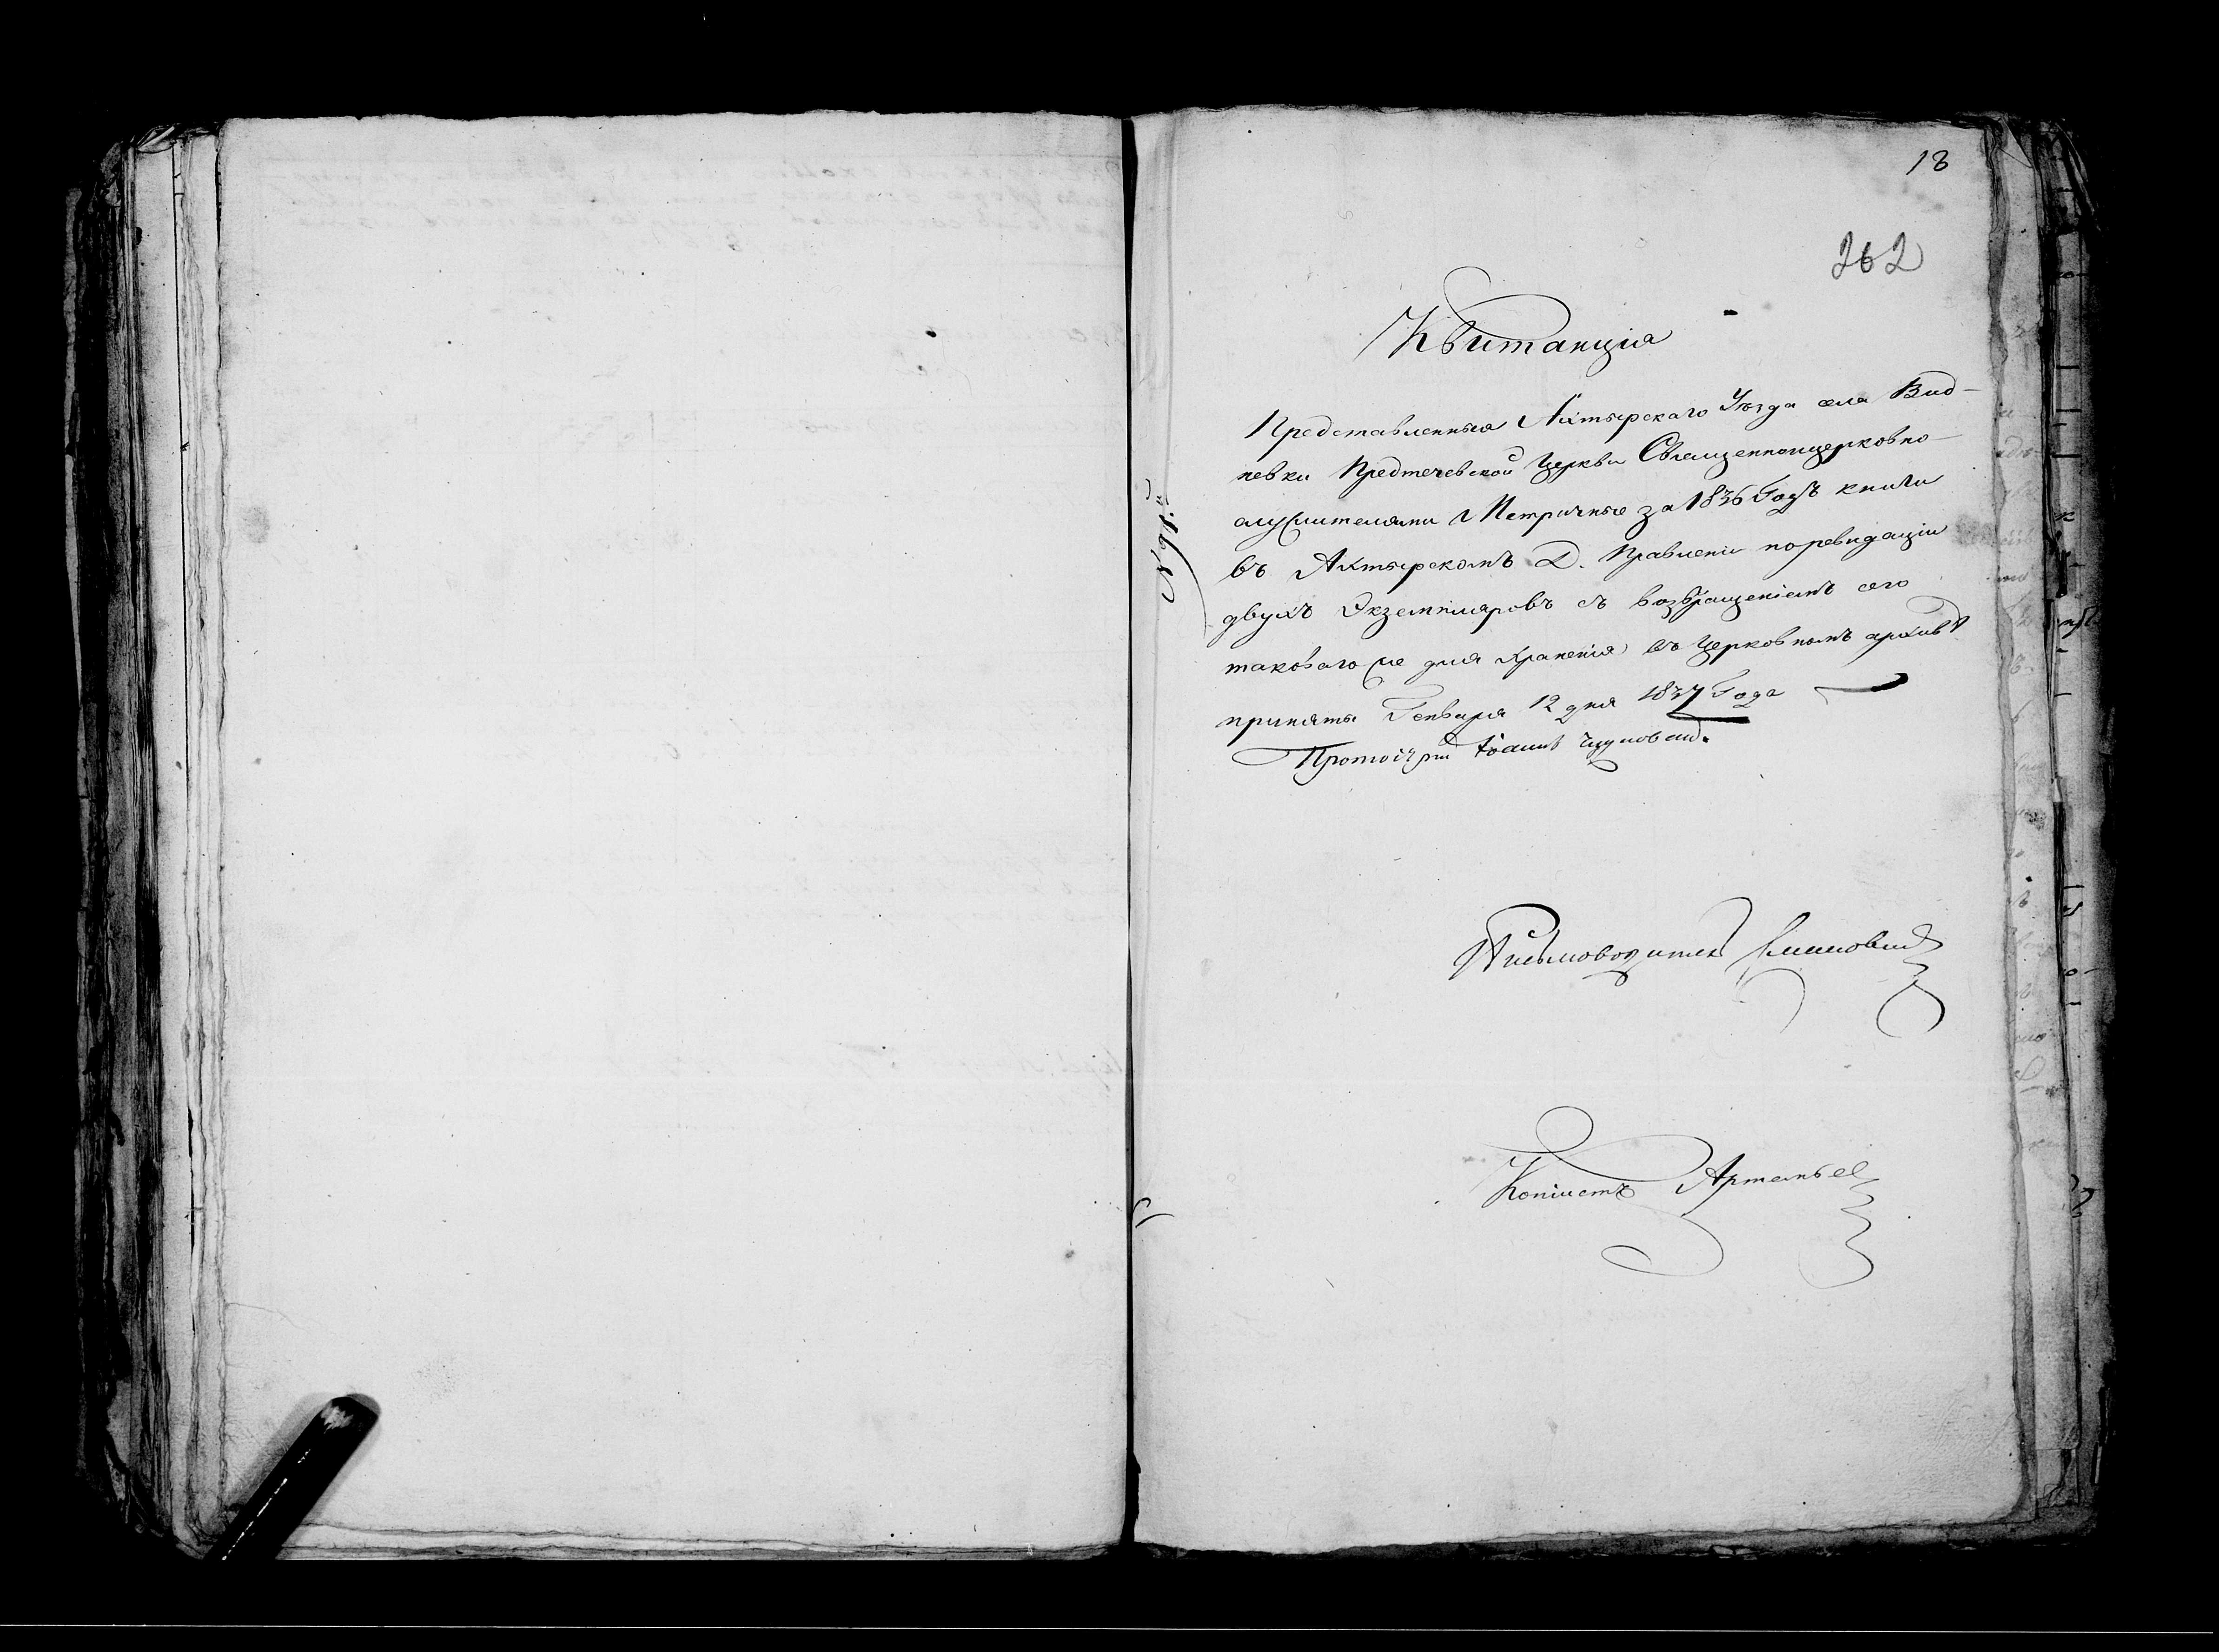 18
262
Квитанція
Представленныя Ахтырскаго Уѣзда села Бид-
невки Предтечевской Церкви Священноцерковно-
служителями Метричные за 1836 Годъ книги
въ Ахтырскомъ Д. Правленіи по ревидаціи
двухъ Экземпляровъ съ возвращеніемъ сего
таковаго же для храненія въ Церковномъ архивѣ
приняты Генваря 12 дня 1837 Года
Протоіерей Іоаннъ
№ 91.й
Письмоводитель
Копіистъ Артемьев